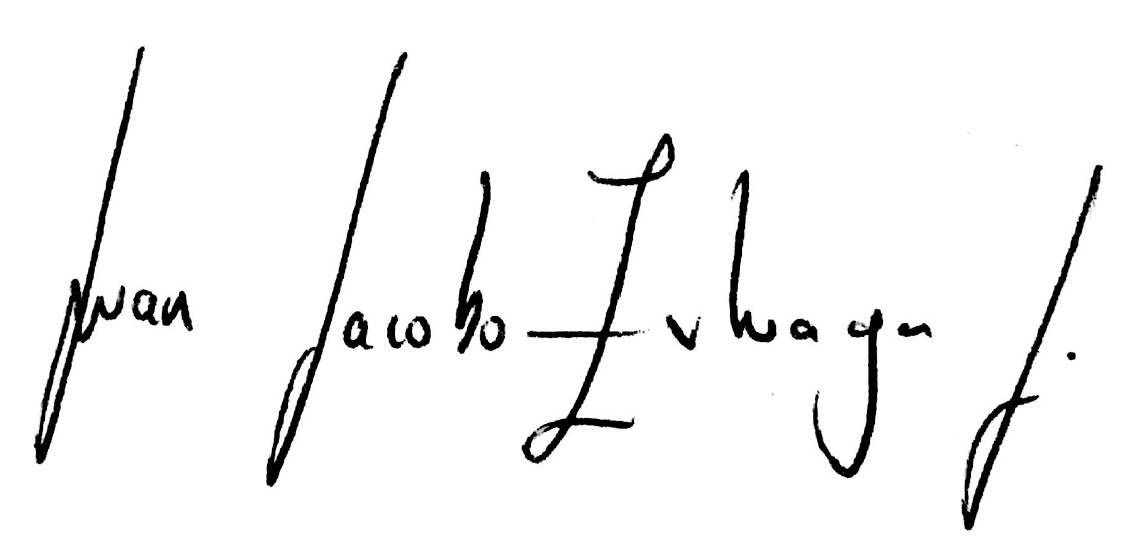 Juan Jacobo Zuluaga J.